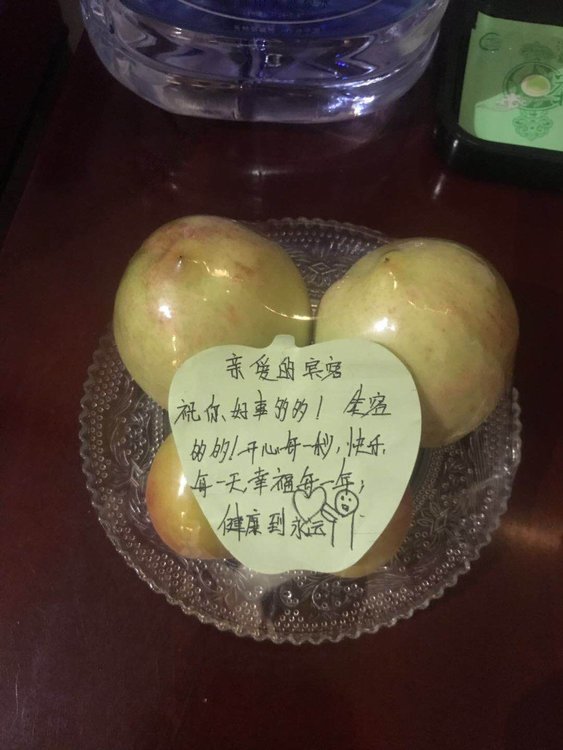 亲爱的宾客
祝你好事多多！金多
多多！开心每一秒，快乐
每一天，幸福每一年，
健康到永远